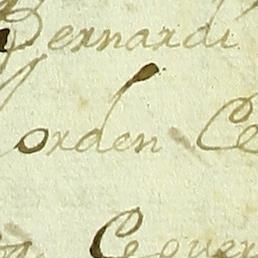 Bernardi
orden Ce
Gover